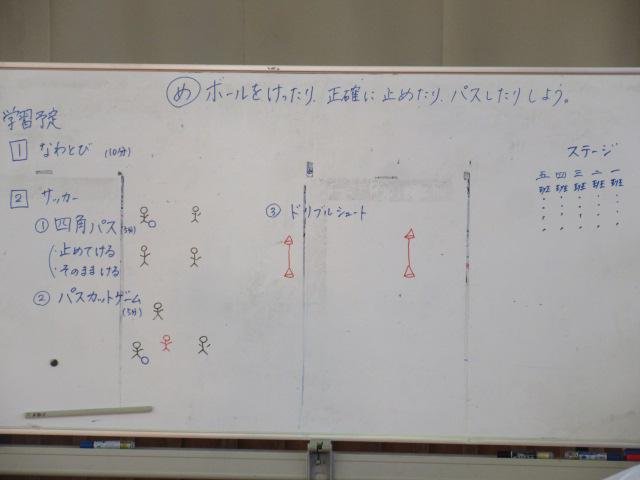 め ボールをけったり、正確に止めたり、パスしたりしよう。
学習予定
1 なわとび (10分)
2 サッカー
① 四角パス (5分)
・止めてける
・そのままける
② パスカットゲーム (5分)
③ ドリブルシュート
ステージ
五班 四班 三班 二班 一班